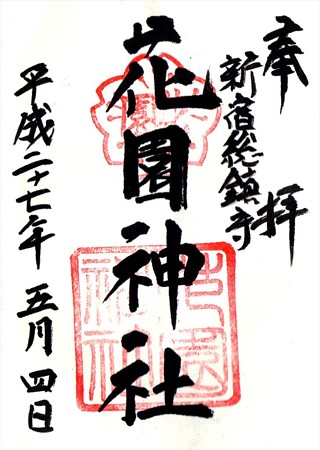 奉拝
新宿総鎮守
花園神社
平成二十七年五月四日
花園
花園神社